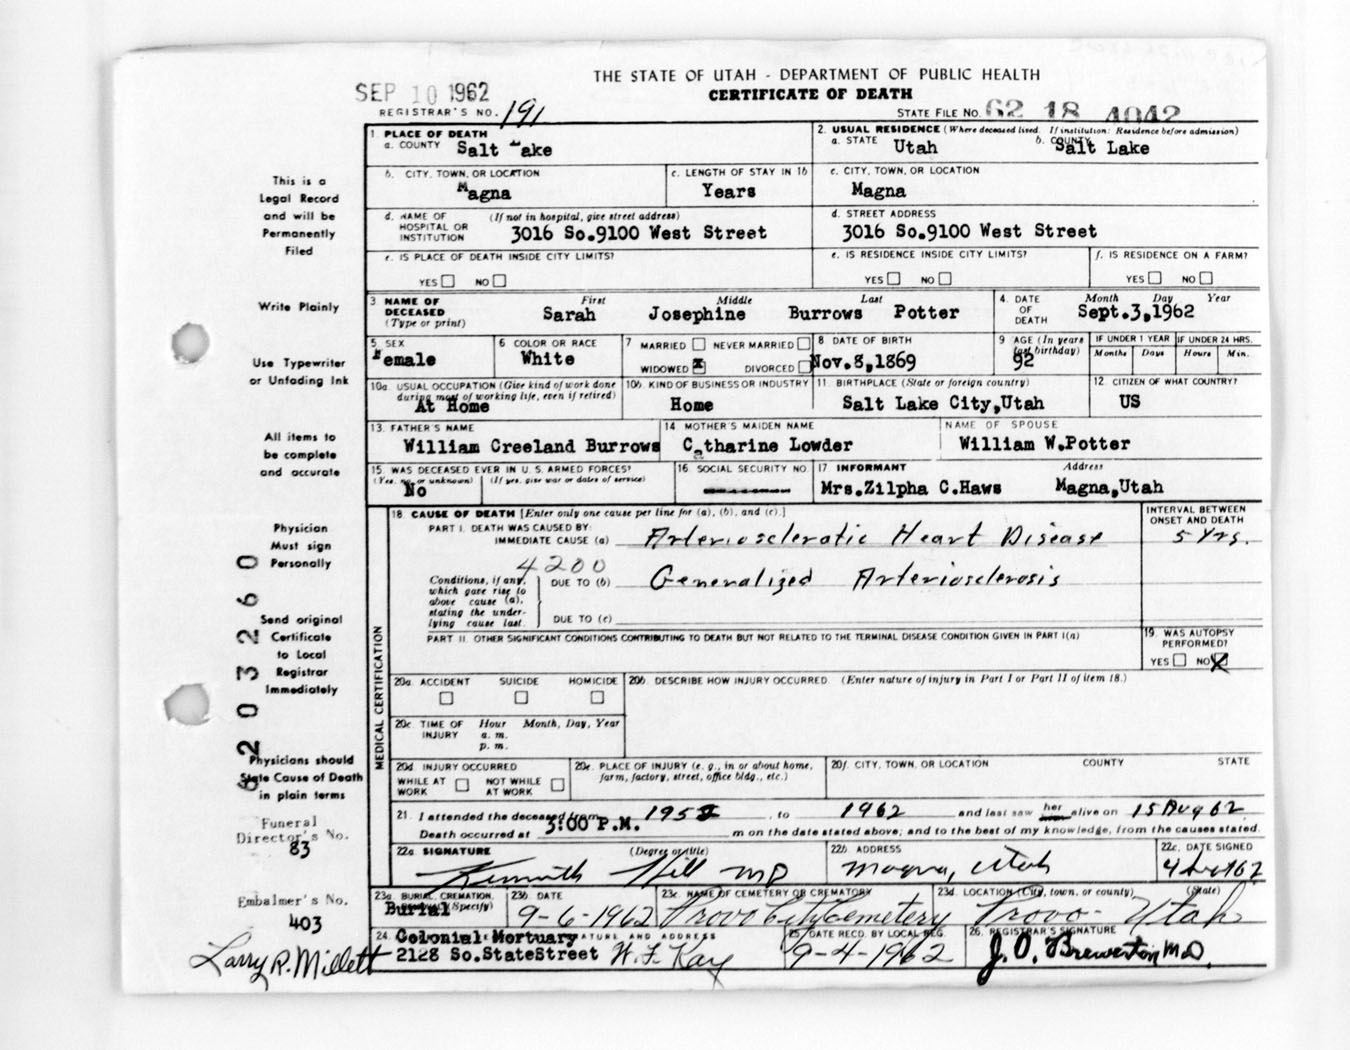 THE STATE OF UTAH - DEPARTMENT OF PUBLIC HEALTH
CERTIFICATE OF DEATH
SEP 10 1962
REGISTRAR'S NO. 191
STATE FILE NO. 62 18 4042
This is a
Legal Record
and will be
Permanently
Filed
Write Plainly
Use Typewriter
or Unfading Ink
All items to
be complete
and accurate
Physician
Must sign
Personally
Send original
Certificate
to Local
Registrar
Immediately
Physicians should
State Cause of Death
in plain terms
Funeral
Director's No.
83
Embalmer's No.
403
Larry R. Millett
6203260
1. PLACE OF DEATH
a. COUNTY Salt Lake
2. USUAL RESIDENCE (Where deceased lived. If institution: Residence before admission)
a. STATE Utah b. COUNTY Salt Lake
b. CITY, TOWN, OR LOCATION
Magna
c. LENGTH OF STAY IN 1b
Years
c. CITY, TOWN, OR LOCATION
Magna
d. NAME OF HOSPITAL OR INSTITUTION (If not in hospital, give street address)
3016 So.9100 West Street
d. STREET ADDRESS
3016 So.9100 West Street
e. IS PLACE OF DEATH INSIDE CITY LIMITS?
YES NO
e. IS RESIDENCE INSIDE CITY LIMITS?
YES NO
f. IS RESIDENCE ON A FARM?
YES NO
3 NAME OF DECEASED (Type or print)
First Middle Last
Sarah Josephine Burrows Potter
4. DATE OF DEATH Month Day Year
Sept.3,1962
5. SEX
Female
6 COLOR OR RACE
White
7 MARRIED NEVER MARRIED
WIDOWED x DIVORCED
8 DATE OF BIRTH
Nov.8,1869
9 AGE (In years last birthday)
92
IF UNDER 1 YEAR
Months Days
IF UNDER 24 HRS.
Hours Min.
10a. USUAL OCCUPATION (Give kind of work done during most of working life, even if retired)
At Home
10b. KIND OF BUSINESS OR INDUSTRY
Home
11. BIRTHPLACE (State or foreign country)
Salt Lake City,Utah
12. CITIZEN OF WHAT COUNTRY?
US
13. FATHER'S NAME
William Creeland Burrows
14 MOTHER'S MAIDEN NAME
Catharine Lowder
NAME OF SPOUSE
William W.Potter
15. WAS DECEASED EVER IN U. S. ARMED FORCES?
(Yes, no, or unknown) (If yes, give war or dates of service)
No
16 SOCIAL SECURITY NO.
17 INFORMANT Address
Mrs.Zilpha C.Haws Magna,Utah
MEDICAL CERTIFICATION
18. CAUSE OF DEATH [Enter only one cause per line for (a), (b), and (c).]
INTERVAL BETWEEN
ONSET AND DEATH
PART I. DEATH WAS CAUSED BY:
IMMEDIATE CAUSE (a) Arteriosclerotic Heart Disease 5 Yrs.
4200
Conditions, if any,
which gave rise to
above cause (a),
stating the under-
lying cause last.
DUE TO (b) Generalized Arteriosclerosis
DUE TO (c)
PART II. OTHER SIGNIFICANT CONDITIONS CONTRIBUTING TO DEATH BUT NOT RELATED TO THE TERMINAL DISEASE CONDITION GIVEN IN PART I(a)
19. WAS AUTOPSY
PERFORMED?
YES NO X
20a. ACCIDENT SUICIDE HOMICIDE
20b. DESCRIBE HOW INJURY OCCURRED. (Enter nature of injury in Part I or Part II of item 18.)
20c. TIME OF INJURY Hour Month, Day, Year
a. m.
p. m.
20d. INJURY OCCURRED
WHILE AT WORK NOT WHILE AT WORK
20e. PLACE OF INJURY (e. g., in or about home,
farm, factory, street, office bldg., etc.)
20f. CITY, TOWN, OR LOCATION COUNTY STATE
21. I attended the deceased from 195 , to 1962 and last saw her alive on 15 Aug 62
Death occurred at 3:00 P.M. m on the date stated above; and to the best of my knowledge, from the causes stated.
22a. SIGNATURE (Degree or title)
Kenneth Hill MD
22b. ADDRESS
Magna, Utah
22c. DATE SIGNED
23a. BURIAL, CREMATION, (Specify)
Burial
23b DATE
9-6-1962
23c. NAME OF CEMETERY OR CREMATORY
Provo City Cemetery
23d. LOCATION (City, town, or county) (State)
Provo - Utah
24. Colonial Mortuary SIGNATURE AND ADDRESS
2128 So.StateStreet W. F. Kay
25 DATE RECD. BY LOCAL REG.
9-4-1962
26. REGISTRAR'S SIGNATURE
J. O. Brewerton, M.D.